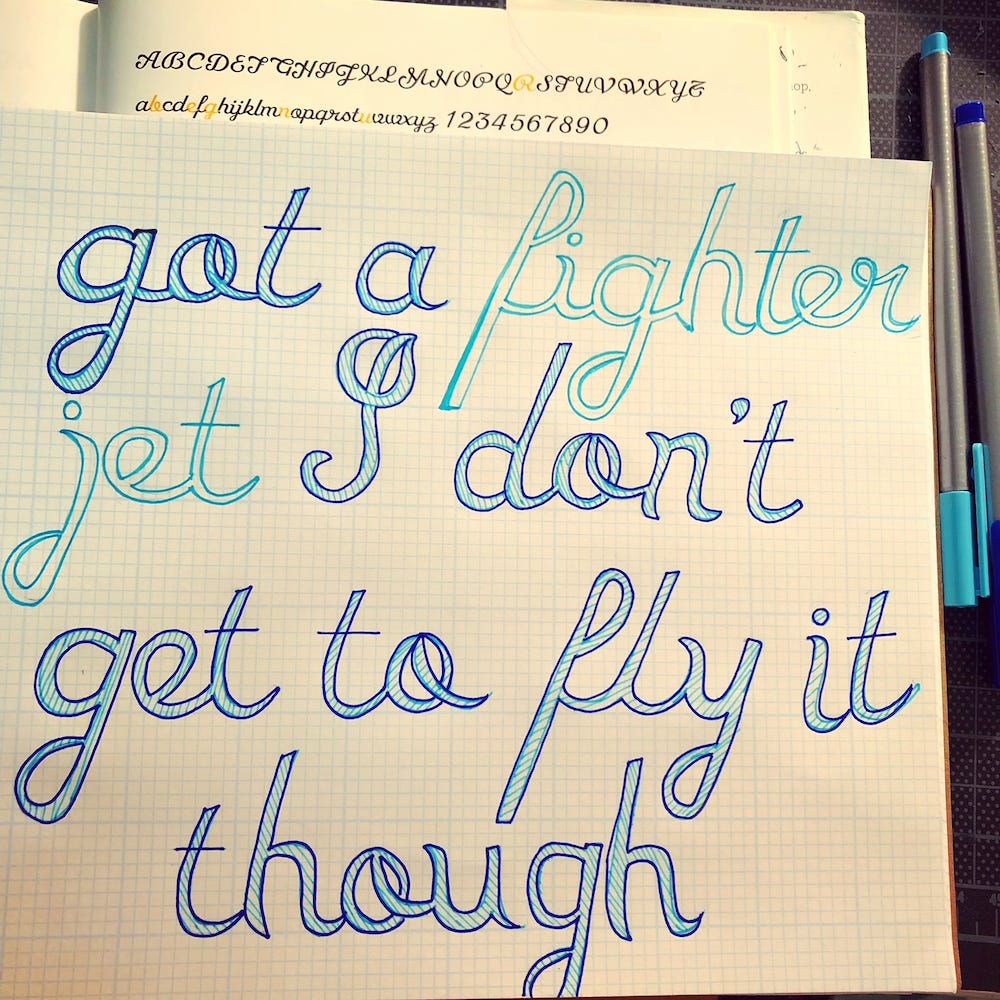 ABCDEFGHIJKLMNOPQRSTUVWXYZ
abcdefghijklmnopqrstuvwxyz 1234567890
got a fighter
jet I don't
get to fly it
though